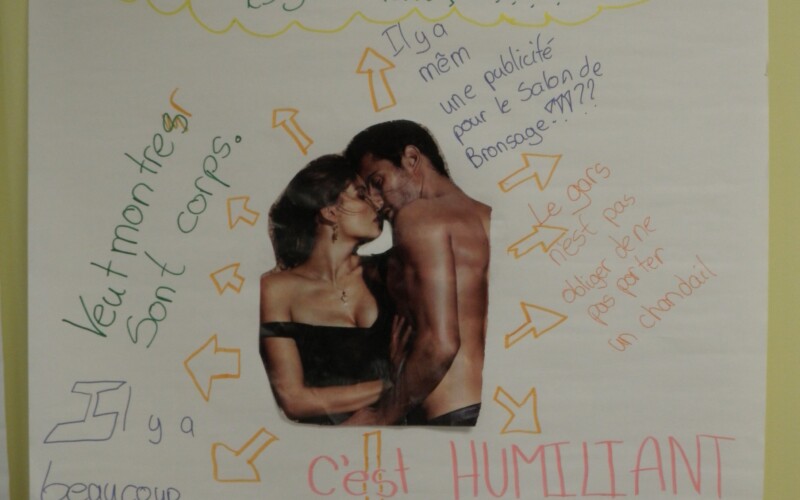 Il y a
mêm
une publicité
pour le Salon de
Bronsage.????
Veut montrer
Sont corps.
Le gars
n'est pas
obliger de ne
pas porter
un chandail
Il y a
beaucoup
C'est HUMILIANT